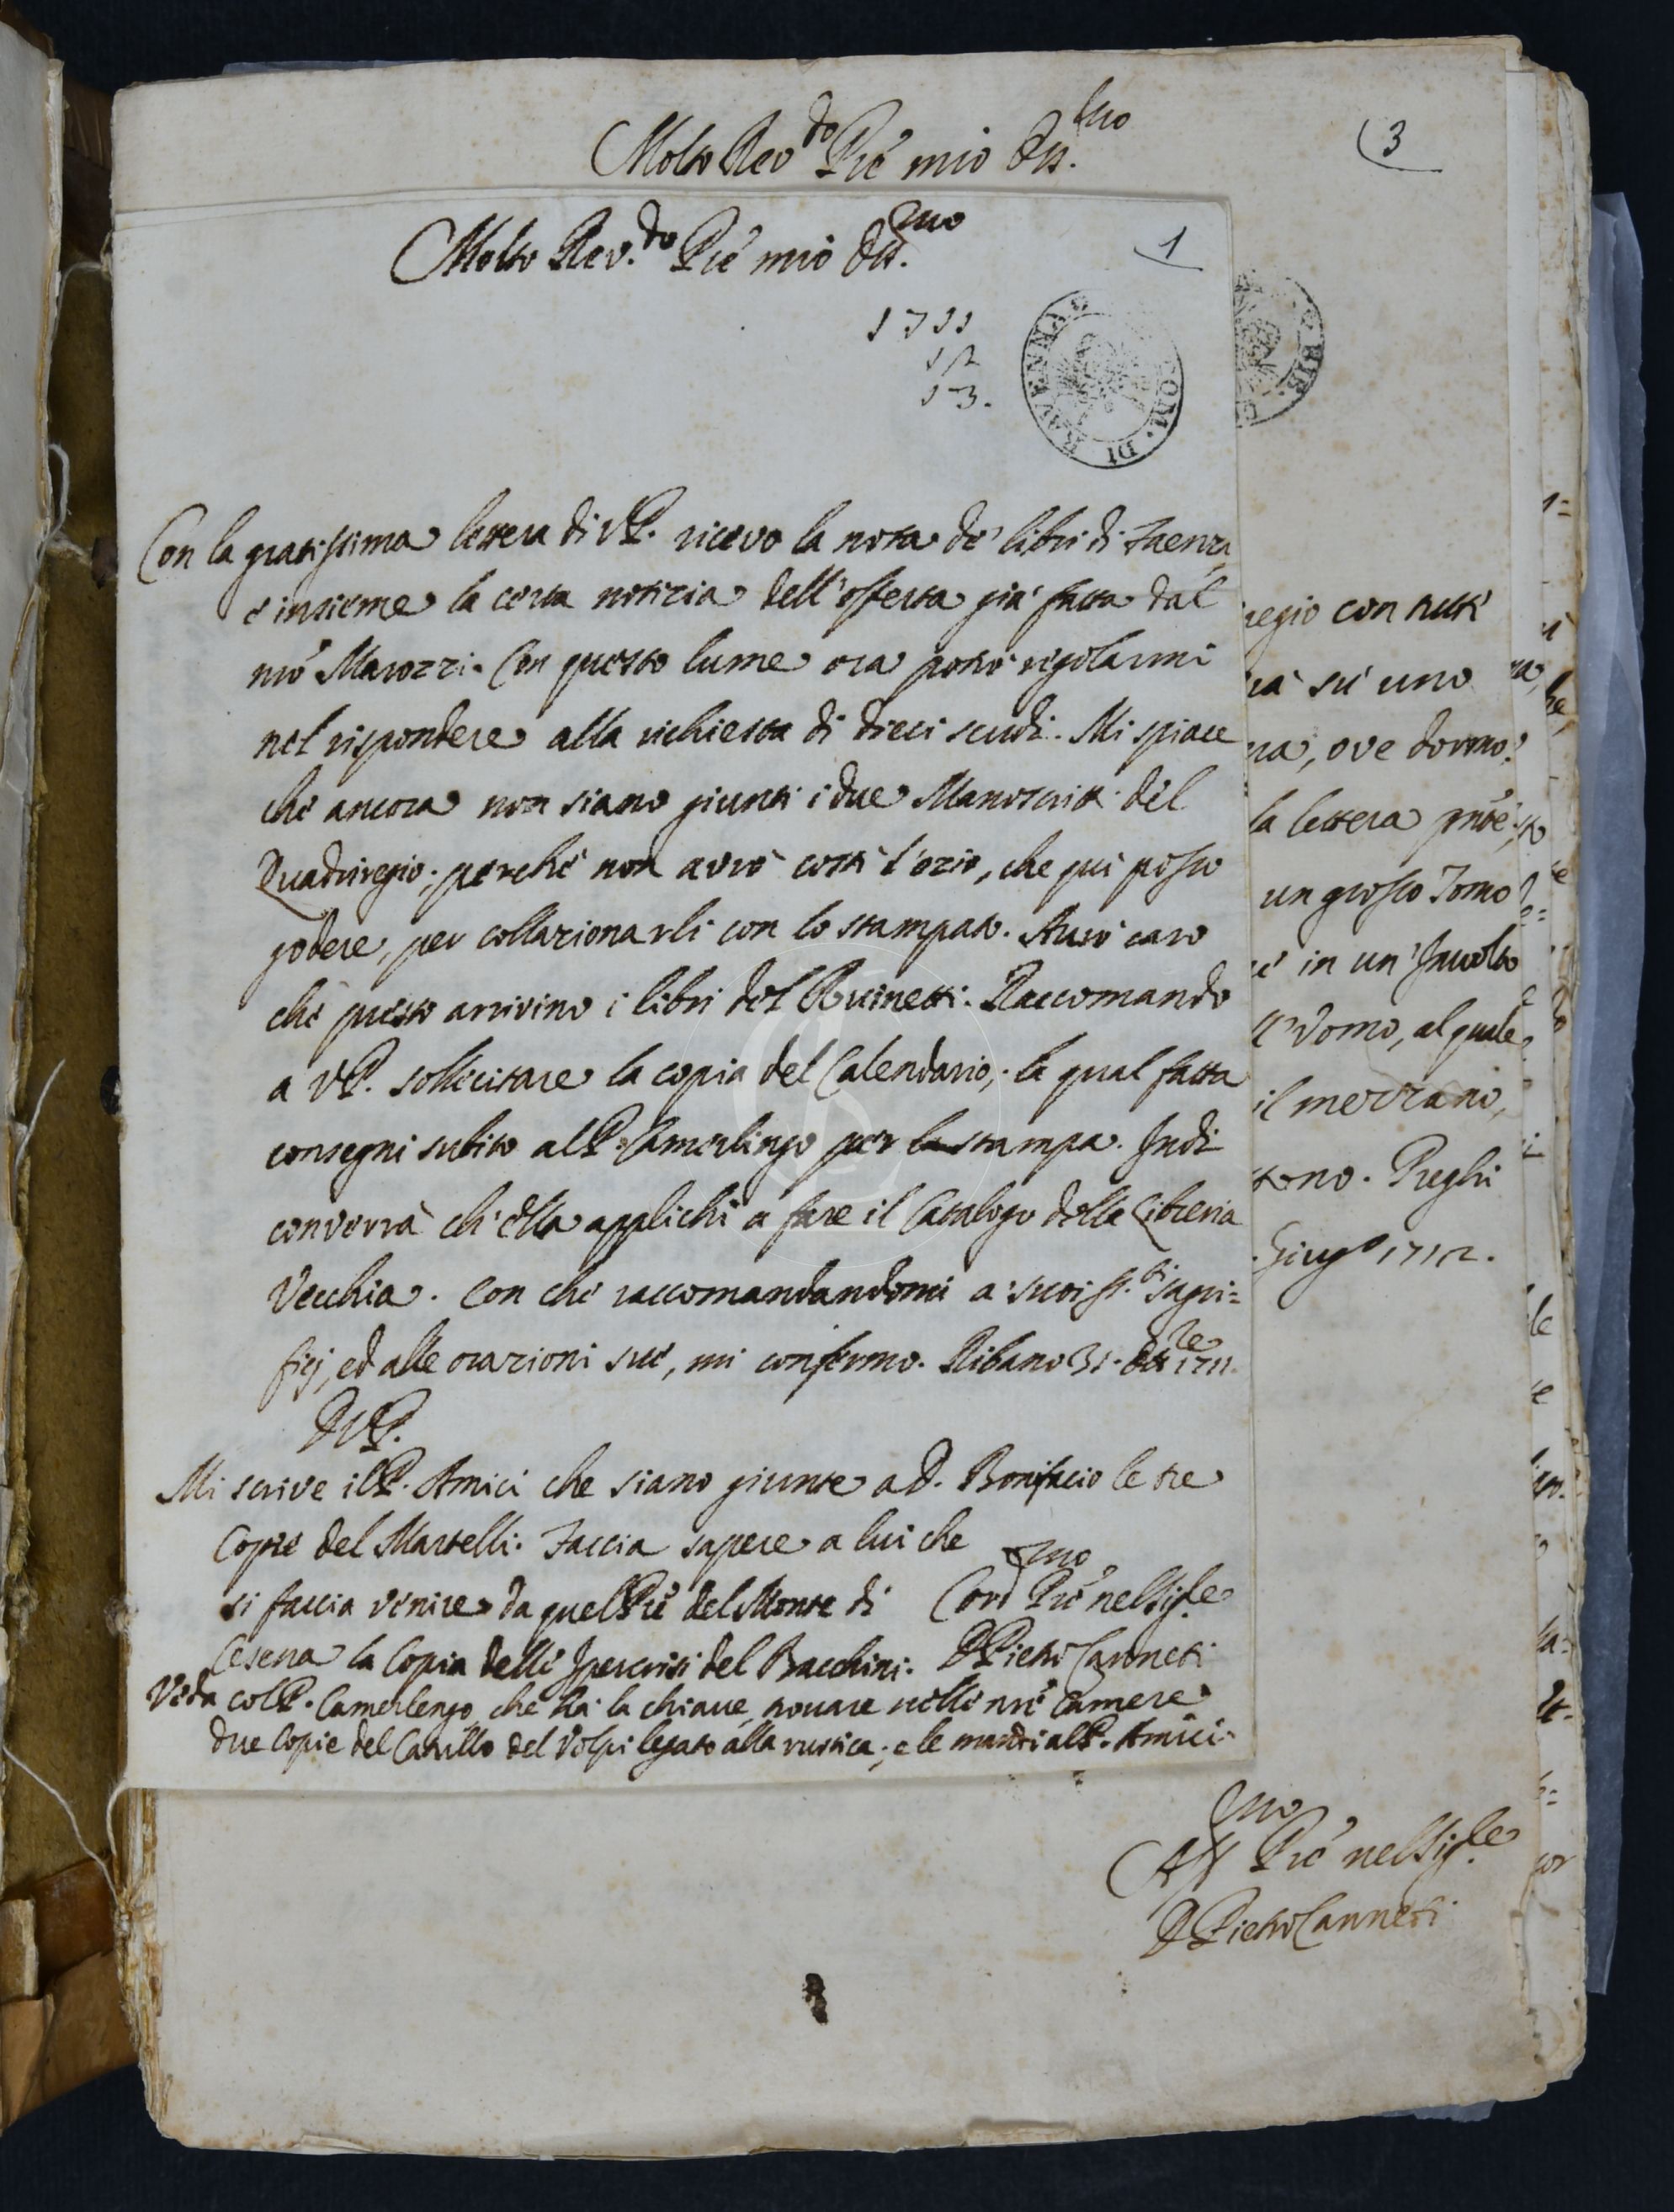 Molto Rev.do P.re mio Oss.mo
3
Molto Rev.do P.re mio Oss.mo
1
1711
12
13.
COM. DI RAVENNA
BIB.
Con la gratissima lettera di V.P. ricevo la nota de' libri di Faenza,
e insieme la certa notizia dell'offerta già fatta dal
n̄ro Marozzi. Con questo lume ora potrò regolarmi
nel rispondere alla richiesta di dieci scudi. Mi spiace
che ancora non siano giunti i due Manoscritti del
Quadriregio; perché non avrò costì l'ozio, che qui posso
godere, per collazionarli con lo stampato. Avrò caro
che presto arrivino i libri del Ruinetti. Raccomando
a V.P. sollecitare la copia del Calendario; la qual fatta
consegni subito al P. Camerlingo per la stampa. Indi
converrà ch'ella applichi a fare il Catalogo della Libreria
Vecchia. Con che raccomandandomi a' suoi s.ti sagri=
ficj, ed alle orazioni sue, mi confermo. Ribano 31. Ott.re 1711.
D.V.P.
Mi scrive il P. Amici che siano giunte a D. Bonifacio le tre
Copie del Martelli. Faccia sapere a lui che
si faccia venire da quel P.re del Monte di
Cesena la Copia delle del Bacchini.
Cord.mo P.re nel Sig.re
D. Pietro Canneti
Veda col P. Camerlengo, che ha la chiave, trovare nelle n̄re Camere
due Copie del Catullo del Volpi legato alla rustica; e le mandi al P. Amici.
regio con tutti
rà sù uno
ra, ove dormo.
la lettera
un grosso Tomo
è in un' Involto
l'Uomo, al quale
il
tono. Preghi
Giug.o 1712.
Aff.mo P.re nel Sig.re
D. Pietro Canneti